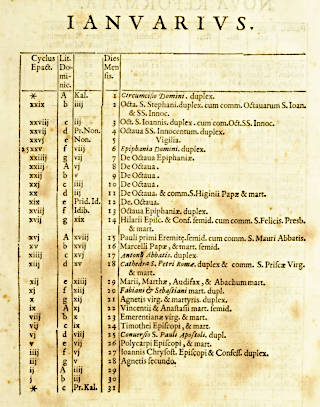 IANVARIVS.
Cyclus Lit. Dies
Epact. Do- Men
mi- sis.
nic.
* A Kal. 1 Circumcisio Domini. duplex.
xxix b iiij 2 Octa. S. Stephani. duplex. cum comm. Octauarum S. Ioan.
& SS. Innoc.
xxviij c iij 3 Oct. S. Ioannis. duplex. cum com. Oct. SS. Innoc.
xxvij d Pr. Non. 4 Octaua SS. Innocentum. duplex.
xxvj e Non. 5 Vigilia.
25 xxv f viij 6 Epiphania Domini. duplex.
xxiiij g vij 7 De Octaua Epiphaniæ.
xxiij A vj 8 De Octaua.
xxij b v 9 De Octaua.
xxj c iiij 10 De Octaua.
xx d iij 11 De Octaua. & comm. S. Higinii Papæ & mart.
xix e Prid. Id. 12 De. Octaua.
xviij f Idib. 13 Octaua Epiphaniæ. duplex.
xvij g xix 14 Hilarii Episc. & Conf. semid. cum comm. S. Felicis. Presb.
& mart.
xvj A xviij 15 Pauli primi Eremitę. semid. cum comm. S. Mauri Abbatis.
xv b xvij 16 Marcelli Papæ, & mart. semid.
xiiij c xvj 17 Antonii Abbatis. duplex.
xiij d xv 18 Cathedra S. Petri Romæ. duplex & comm. S. Priscæ Virg.
& mart.
xij e xiiij 19 Marii, Marthæ, Audifax, & Abachum mart.
xj f xiij 20 Fabiani & Sebastiani mart. dupl.
x g xij 21 Agnetis virg. & martyris. duplex.
ix A xj 22 Vincentii & Anastasii mart. semid.
viij b x 23 Emerentianæ virg. & mart.
vij c ix 24 Timothei Episcopi, & mart.
vj d viij 25 Conuersio S. Pauli Apostoli. dupl.
v e vij 26 Polycarpi Episcopi, & mart.
iiij f vj 27 Ioannis Chrysost. Episcopi & Confess. duplex.
iij g v 28 Agnetis secundo.
ij A iiij 29
j b iij 30
* c Pr. Kal. 31